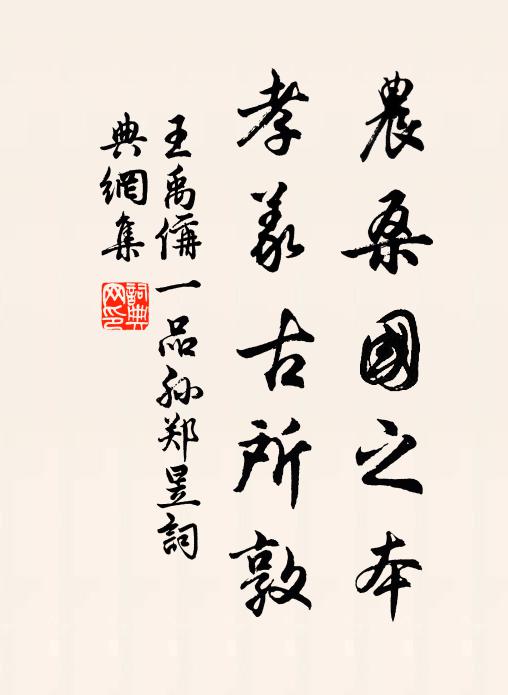 農桑國之本
孝義古所敦
王禹偁一品孫郑昱詞
典網集
詞典
网印